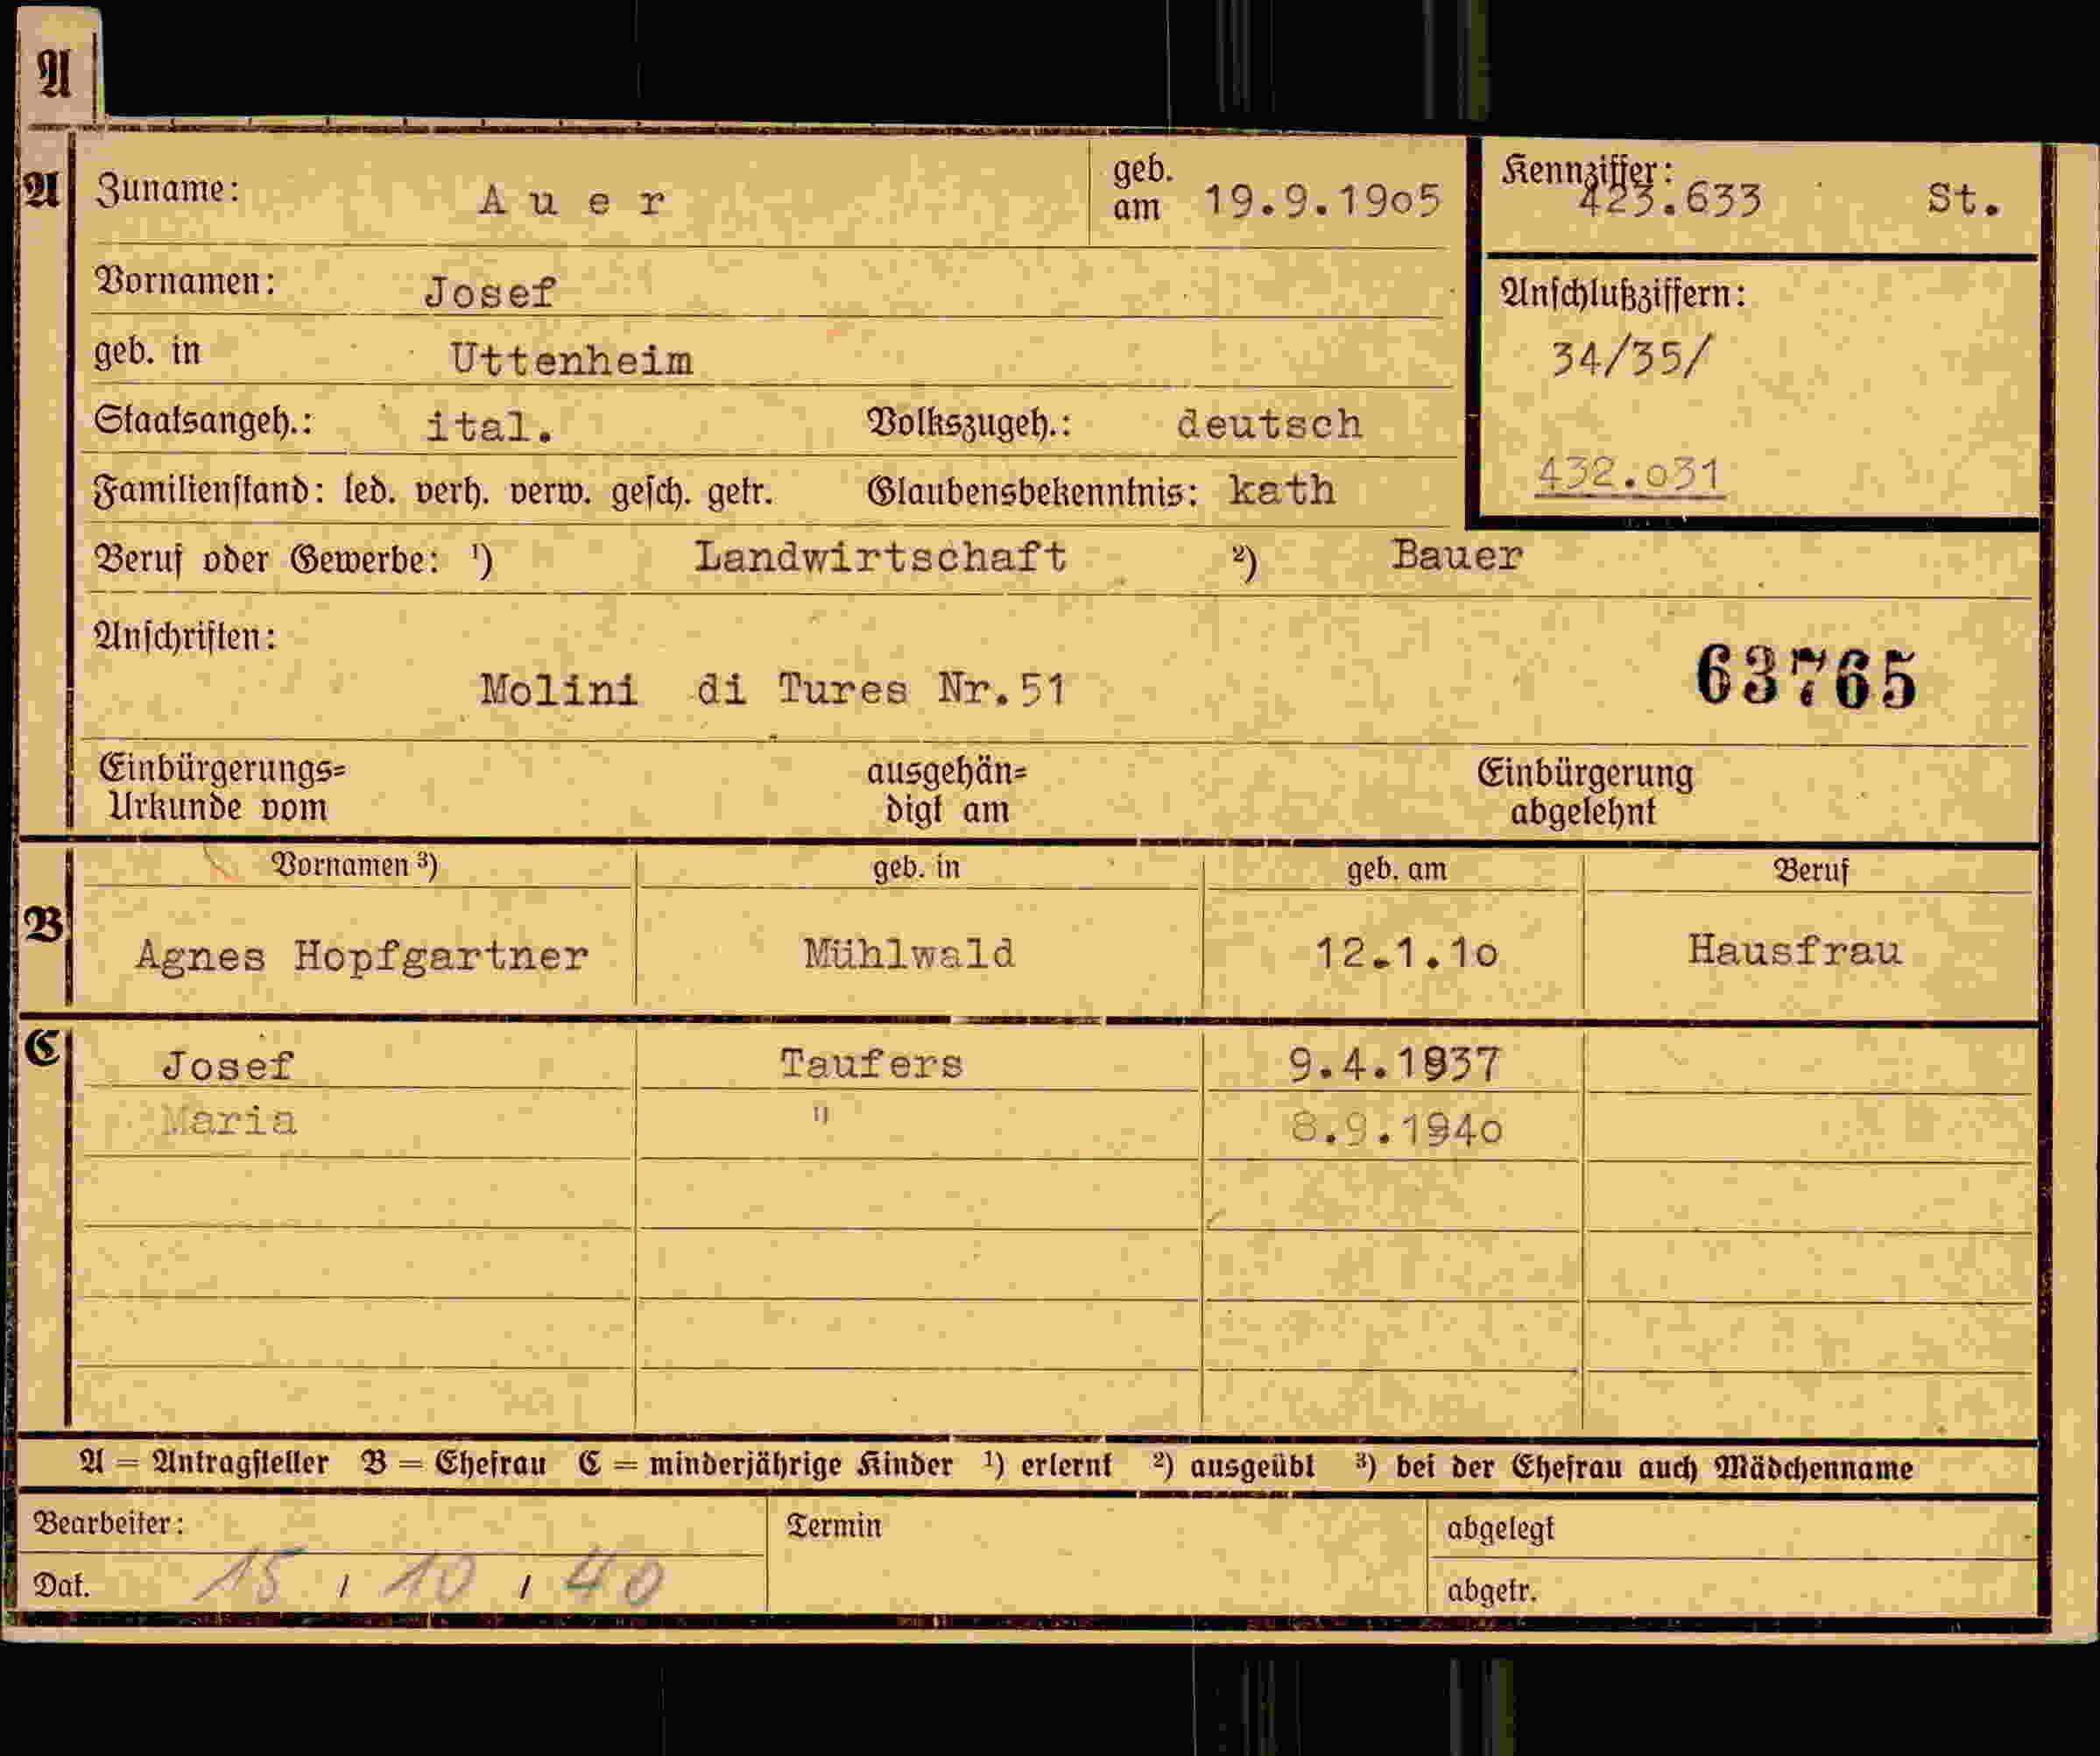 A
A Zuname: Auer geb. am 19.9.19o5 Kennziffer: 423.633 St.
Vornamen: Josef Anschlußziffern:
geb. in Uttenheim 34/35/
Staatsangeh.: ital. Volkszugeh.: deutsch
432.o31
Familienstand: led. verh. verw. gesch. getr. Glaubensbekenntnis: kath
Beruf oder Gewerbe: ¹) Landwirtschaft ²) Bauer
Anschriften:
Molini di Tures Nr.51 63765
Einbürgerungs= ausgehän= Einbürgerung
Urkunde vom digt am abgelehnt
Vornamen ³) geb. in geb. am Beruf
B Agnes Hopfgartner Mühlwald 12.1.1o Hausfrau
C Josef Taufers 9.4.1937
Maria " 8.9.194o
A = Antragsteller B = Ehefrau C = minderjährige Kinder ¹) erlernt ²) ausgeübt ³) bei der Ehefrau auch Mädchenname
Bearbeiter: Termin abgelegt
Dat. 15 / 10 / 40 abgetr.